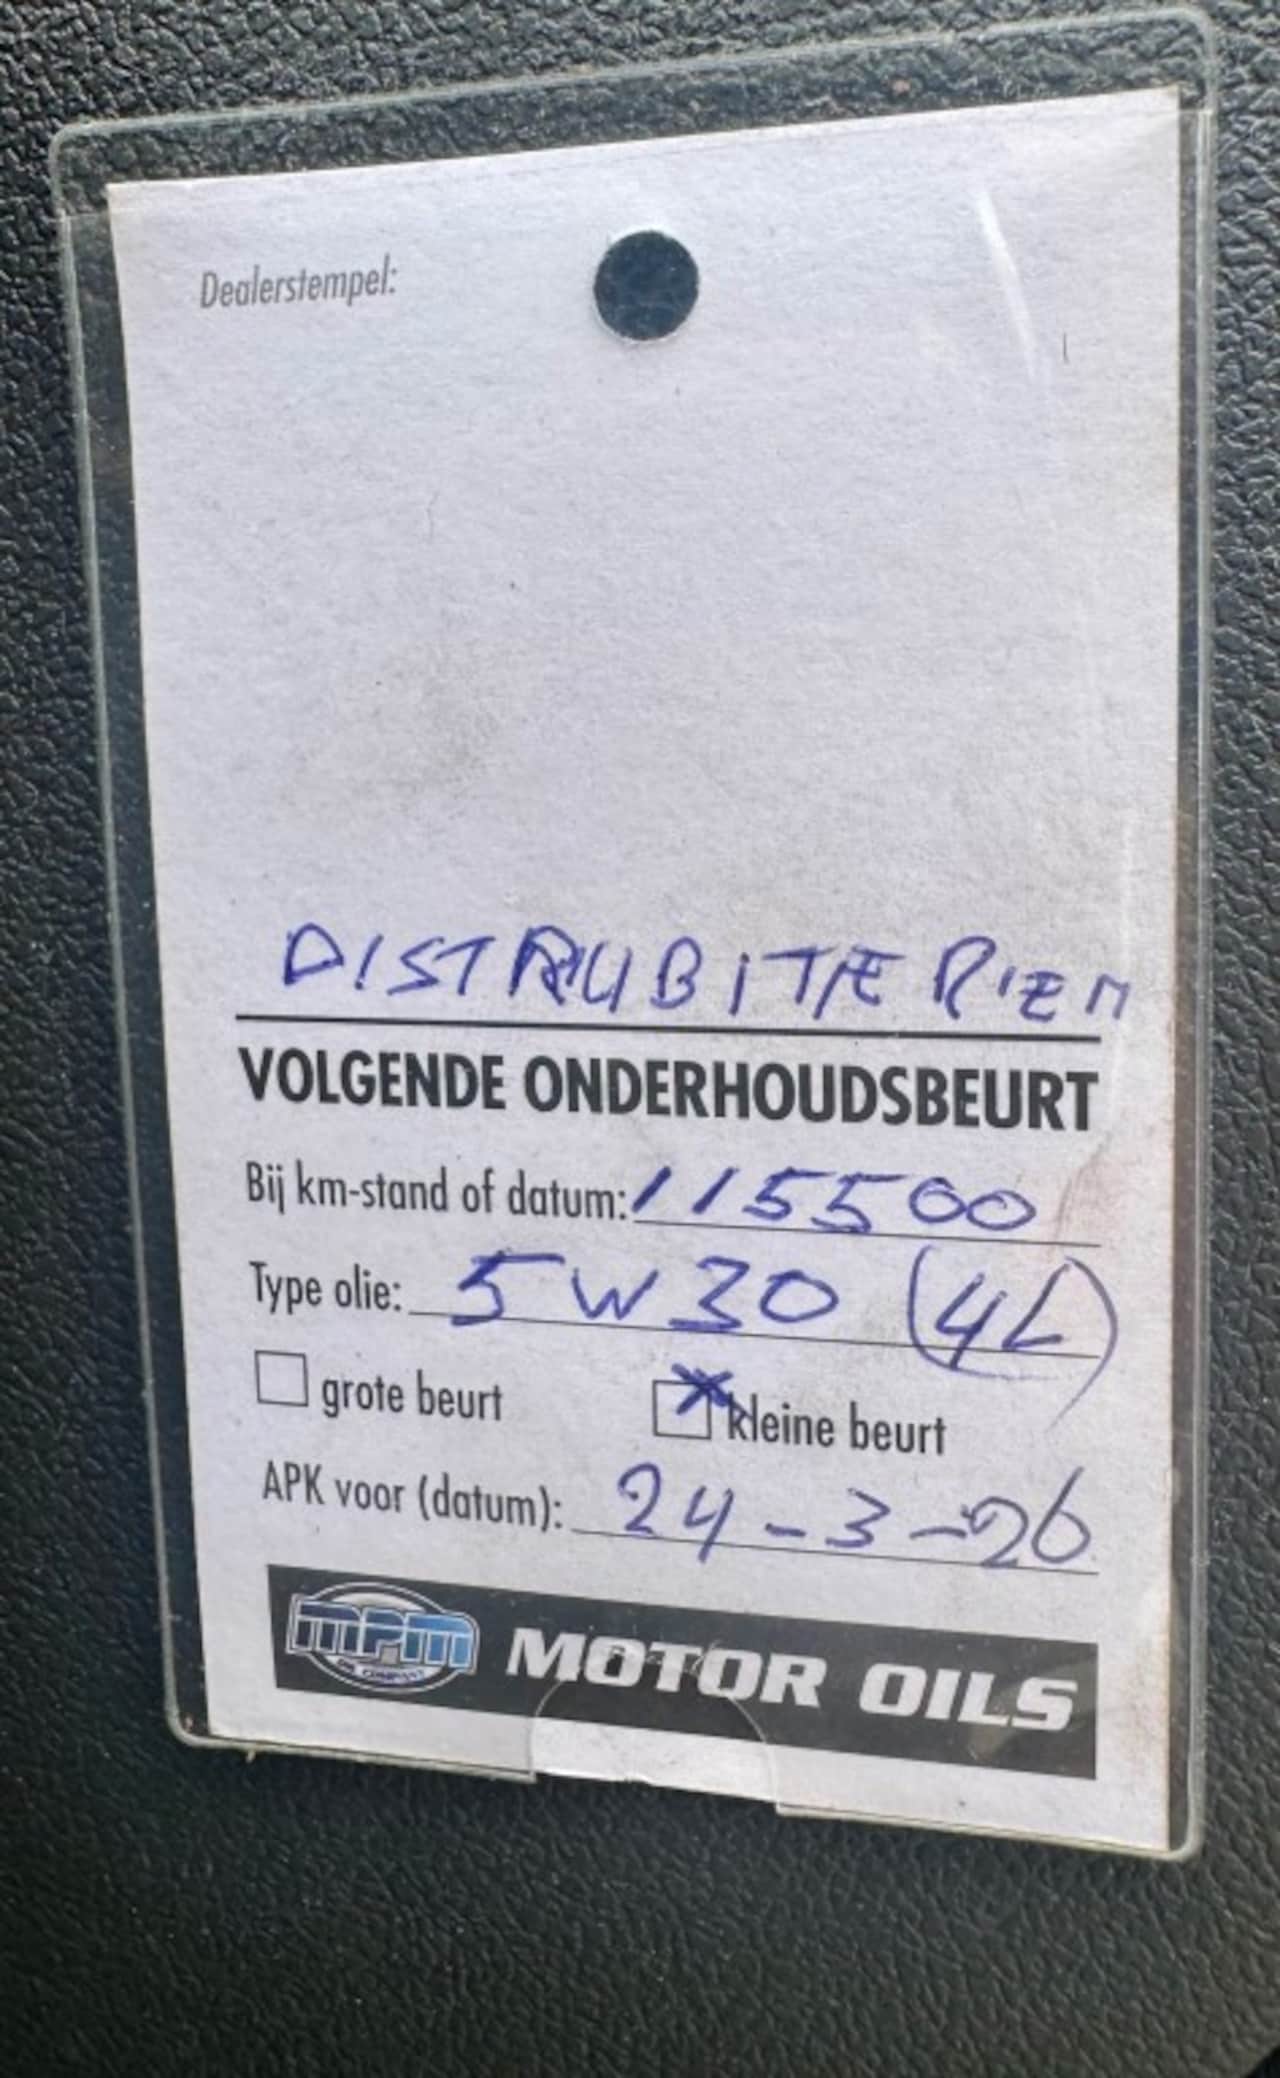 Dealerstempel:
DISTRUBITIE RIEM
VOLGENDE ONDERHOUDSBEURT
Bij km-stand of datum: 115500
Type olie: 5W30 (4L)
grote beurt kleine beurt
APK voor (datum): 24-3-26
MPM OIL COMPANY MOTOR OILS